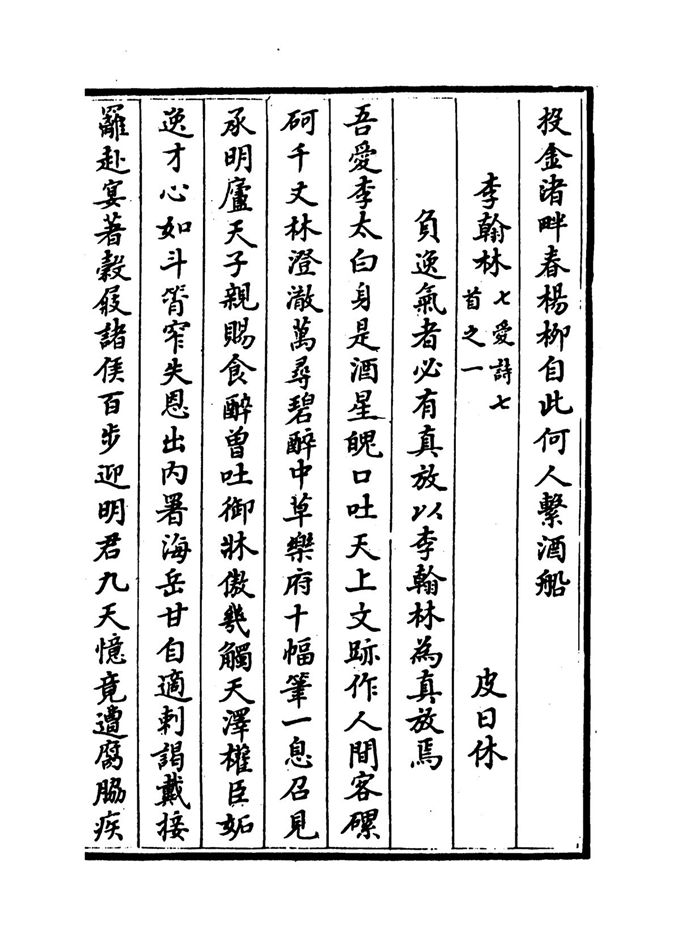 投金渚畔春楊柳自此何人繫酒船
李翰林七愛詩七首之一　皮日休
負逸氣者必有真放以李翰林為真放焉
吾愛李太白身是酒星魄口吐天上文跡作人間客磥
砢千丈林澄澈萬尋碧醉中草樂府十幅筆一息召見
承明廬天子親賜食醉曾吐御牀傲幾觸天澤權臣妬
逸才心如斗筲窄失恩出內署海岳甘自適刺謁戴接
䍦赴宴著縠屐諸侯百步迎明君九天憶竟遭腐脇疾